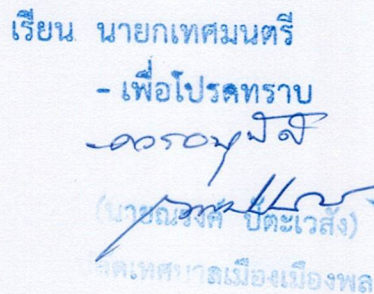 เรียน นายกเทศมนตรี
- เพื่อโปรดทราบ
- ควรอนุมัติ
(นายณรงค์ ปิตะเวสัง)
ปลัดเทศบาลเมืองเมืองพล